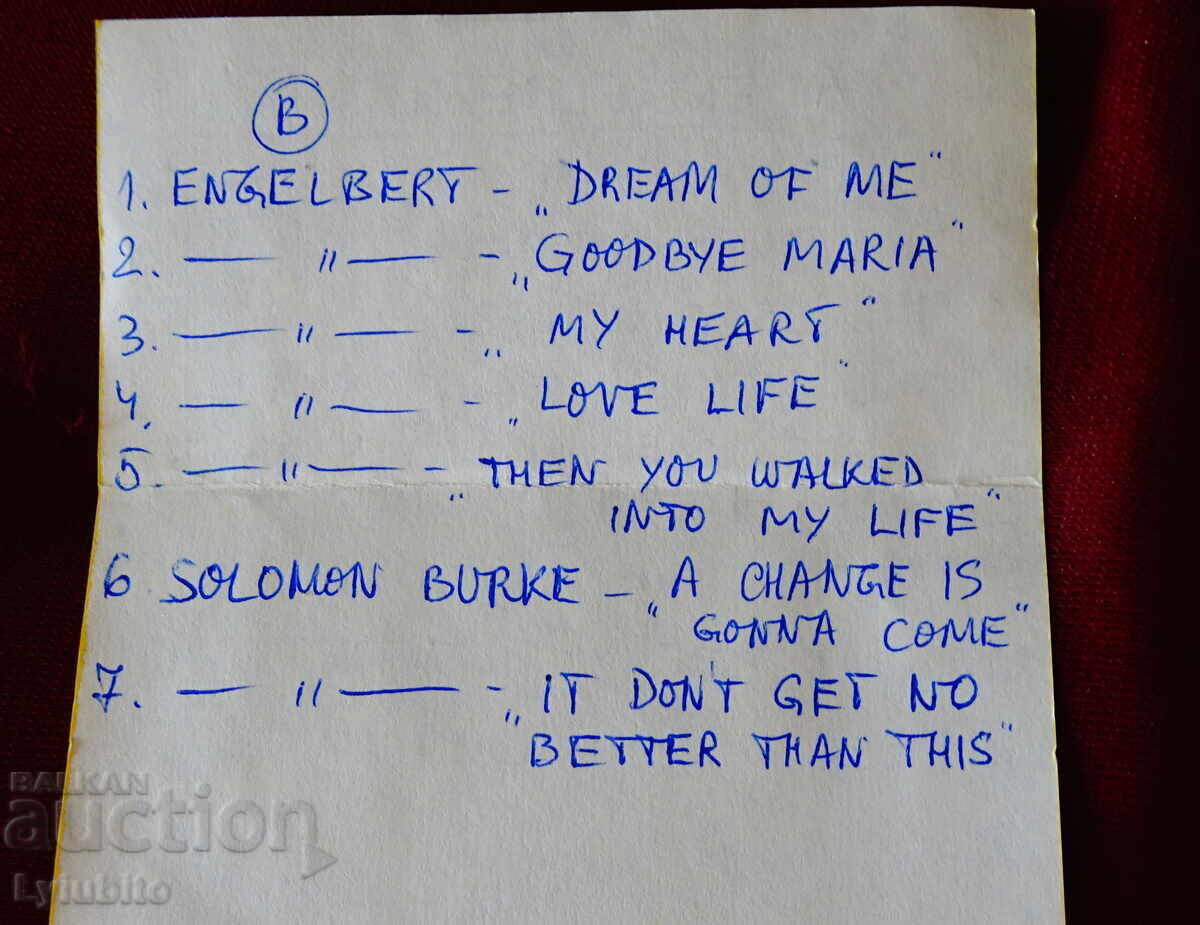 B
1. ENGELBERT - „DREAM OF ME"
2. — " — - „GOODBYE MARIA"
3. — " — - „MY HEART"
4. — " — - „LOVE LIFE"
5. — " — - „THEN YOU WALKED
INTO MY LIFE"
6 SOLOMON BURKE - „A CHANGE IS
GONNA COME"
7. — " — - „IT DON'T GET NO
BETTER THAN THIS"
BALKAN
auction
Lyiubito